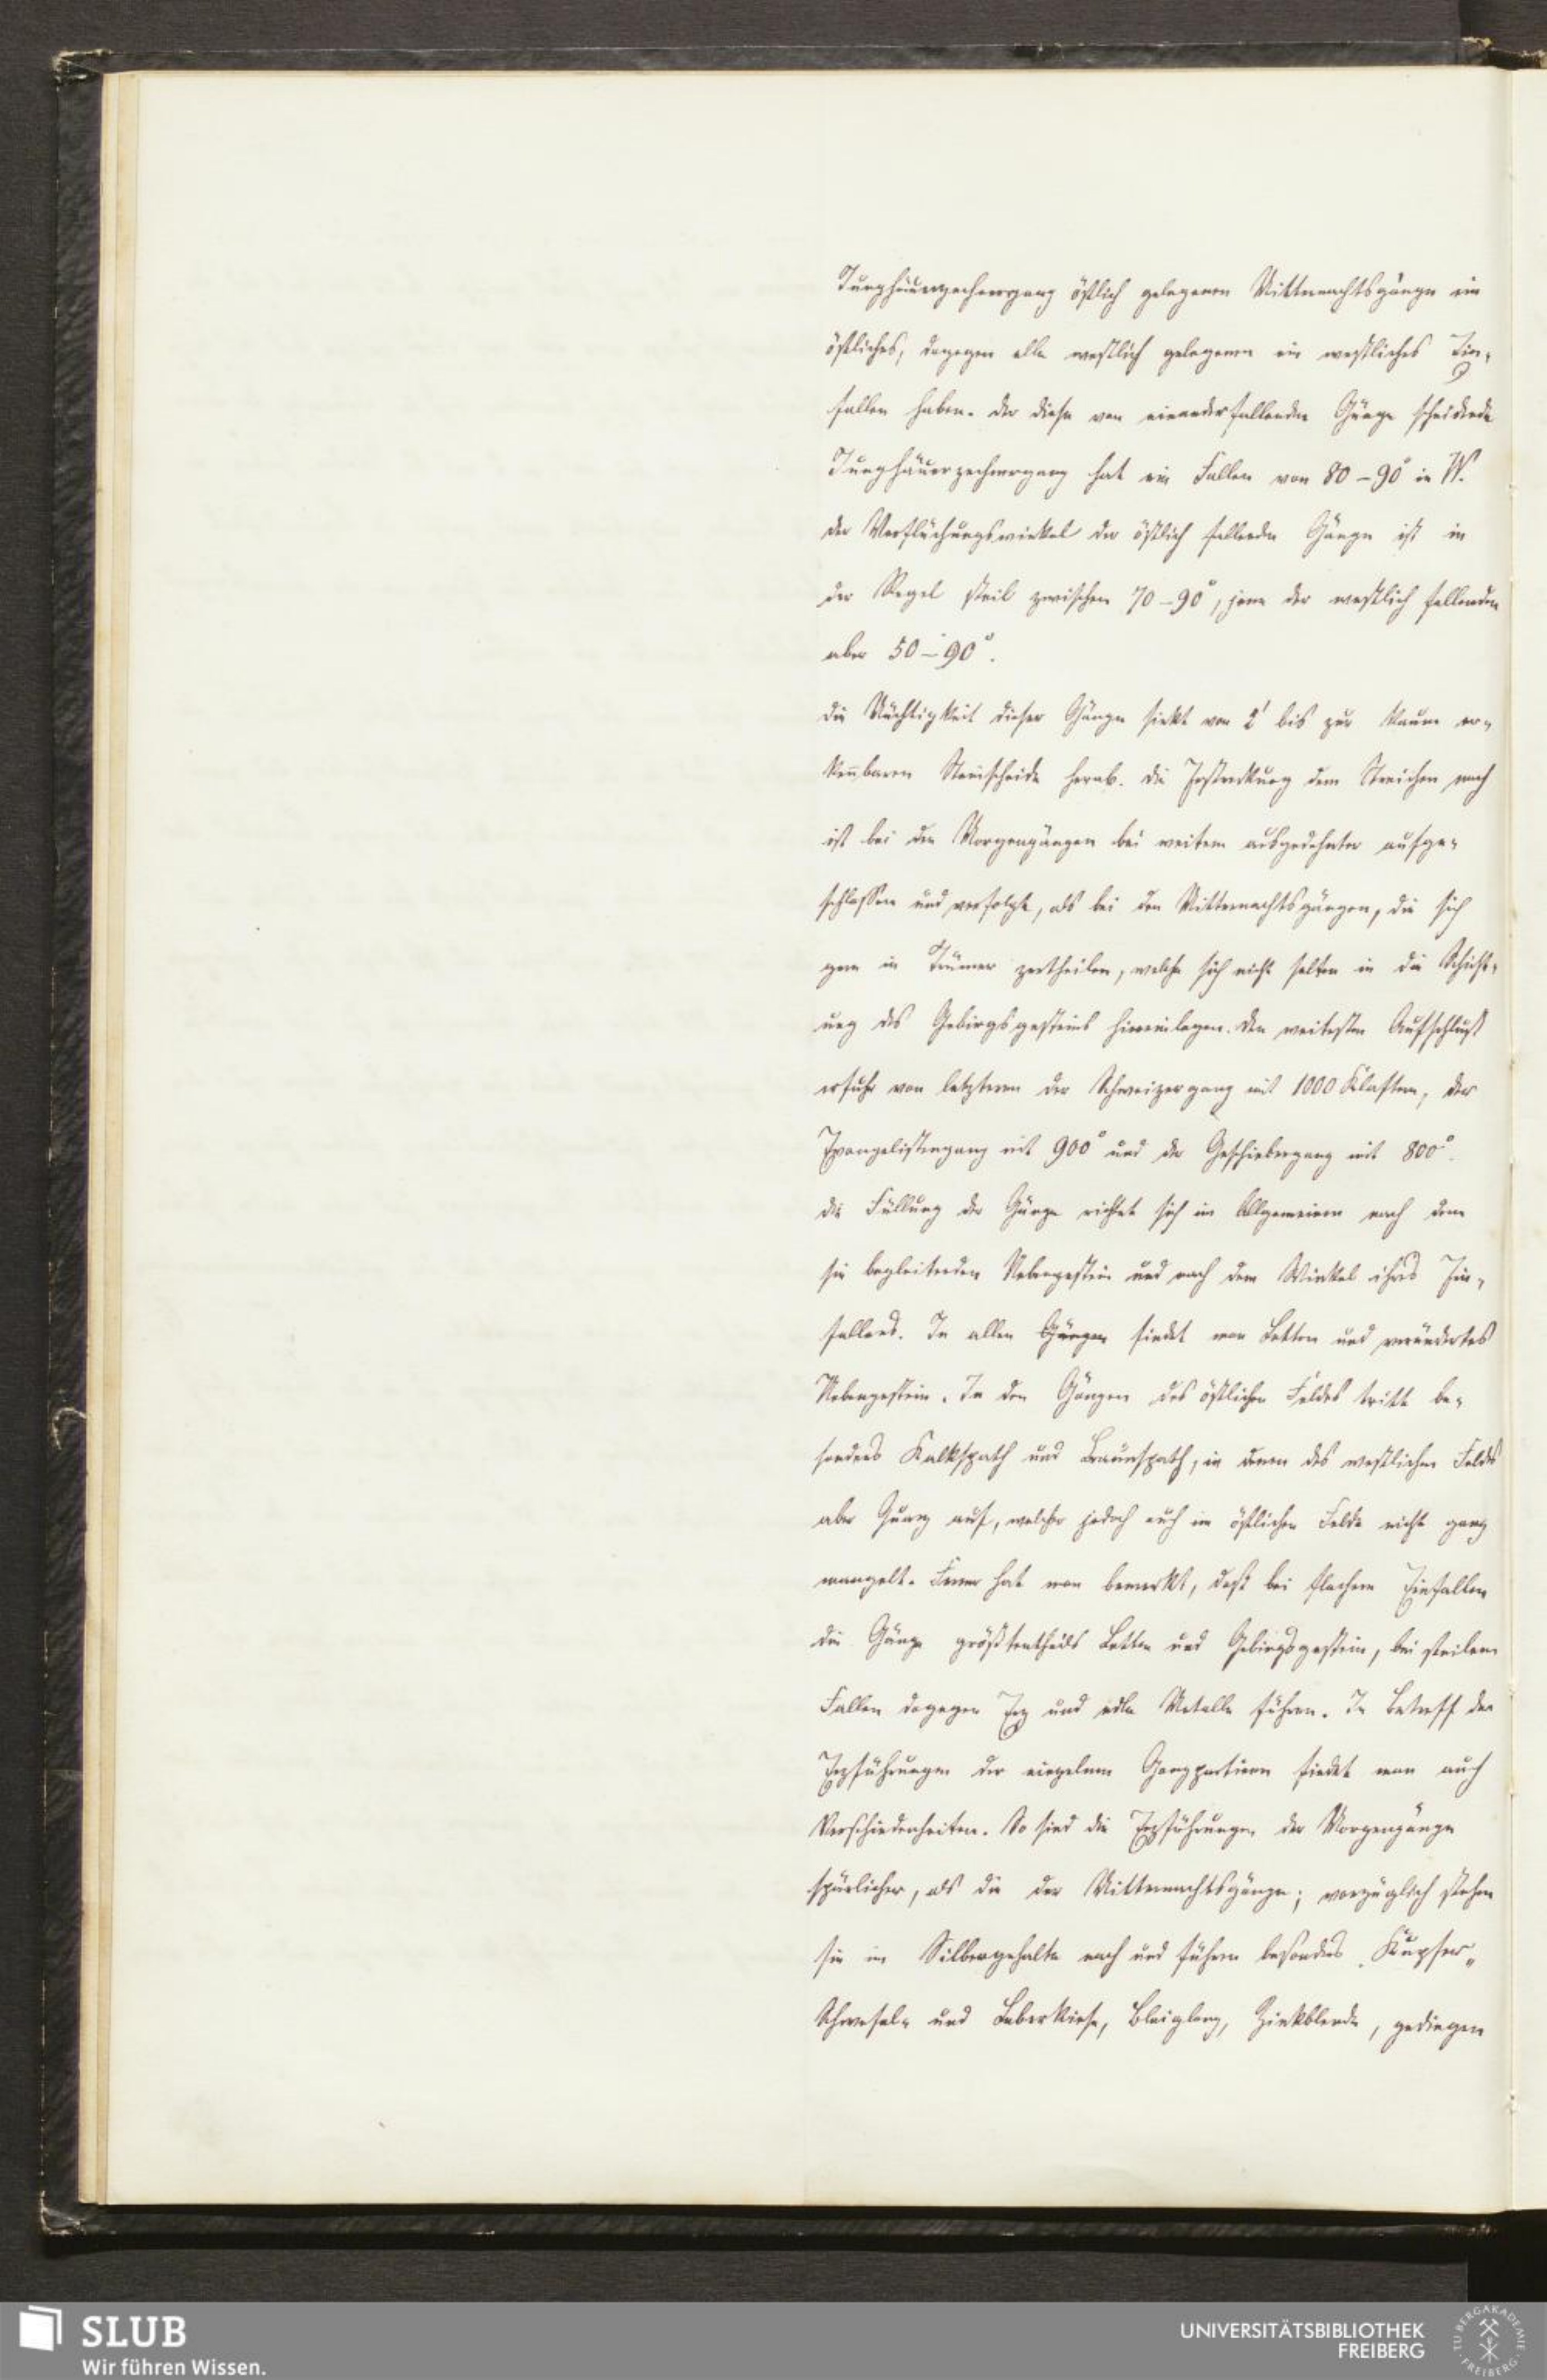 Junghäuerzechnergang östlich gelegenen Mitternachtsgänge ein
östliches, dagegen alle westlich gelegenen ein westliches Ein-
fallen haben. Der diese von einanderfallenden Gänge scheidende
Junghäuerzechnergang hat ein Fallen von 80 – 90° in W.
Der Verflächungswinkel der östlich fallenden Gänge ist in
der Regel steil zwischen 70 – 90°, jene der westlich fallenden
aber 50 – 90°.
Die Mächtigkeit dieser Gänge sinkt von 2' bis zur kaum er-
kennbaren Steinscheide herab. Die Erstreckung dem Streichen nach
ist bei den Morgengängen bei weitem ausgedehnter aufge-
schlossen und verfolgt, als bei den Mitternachtsgängen, die sich
gern in Trümer zertheilen, welche sich nicht selten in die Schicht-
ung des Gebirgsgesteins hineinlegen. Den weitesten Aufschluß
erfuhr von letzteren der Schweizergang mit 1000 Klaftern, der
Evangelistengang mit 900° und der Geschiebergang mit 800°.
Die Füllung der Gänge richtet sich im Allgemeinen nach dem
sie begleitenden Nebengestein und nach dem Winkel ihres Ein-
fallens. In allen Gängen findet man Letten und verändertes
Nebengestein. In den Gängen des östlichen Feldes tritt be-
sonders Kalkspath und Braunspath, in denen des westlichen Feldes
aber Quarz auf, welcher jedoch auch im östlichen Felde nicht ganz
mangelt. Ferner hat man bemerkt, daß bei flachem Einfallen
die Gänge größtentheils Letten und Gebirgsgestein, bei steilem
Fallen dagegen Erz und edle Metalle führen. In Betreff der
Erzführungen der einzelnen Gangpartieen findet man auch
Verschiedenheiten. So sind die Erzführungen der Morgengänge
spärlicher, als die der Mitternachtsgänge; vorzüglich stehen
sie im Silbergehalte nach und führen besonders Kupfer-
Schwefel- und Leberkiese, Bleiglanz, Zinkblende, gediegen
SLUB
Wir führen Wissen.
UNIVERSITÄTSBIBLIOTHEK
FREIBERG
TU BERGAKADEMIE
FREIBERG